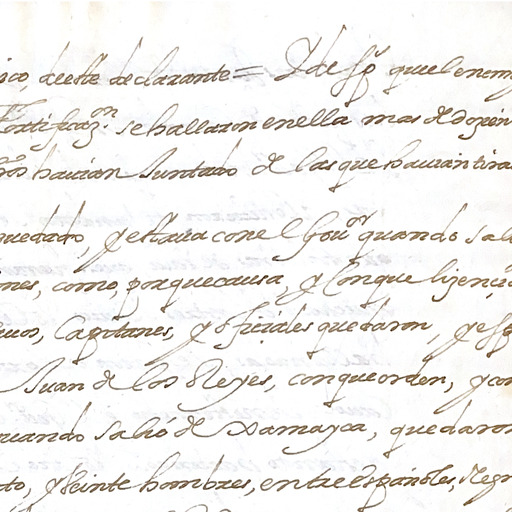 ico, deeste declarante = Y despᵉ quel enem
Fortificazⁿ. se hallaron enella mas de dozien
havian Juntado de las que havian tira
quedado, y estava con el Gouʳ quando sal
nes, como, porque causa, y Con que lizenç
uos, Capitanes, y ofiçiales quedaron, y esp
Juan de los Reyes, con que orden, y con
quando salió de Xamayca, quedaron
to, y Veinte hombres, entre españoles, Negr